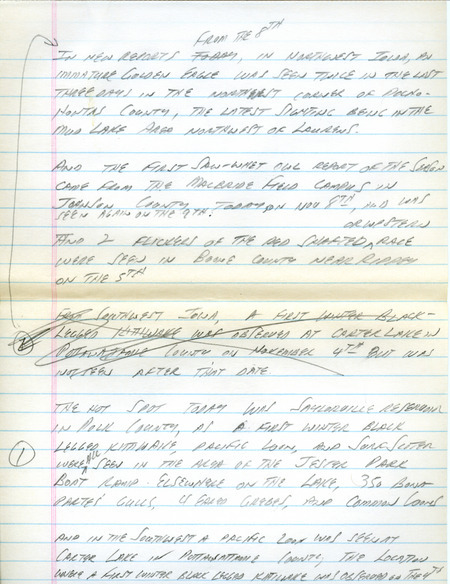 FROM THE 8TH
IN NEW REPORTS TODAY, IN NORTHWEST IOWA, AN
IMMATURE GOLDEN EAGLE WAS SEEN TWICE IN THE LAST
THREE DAYS IN THE NORTHWEST CORNER OF POCAHO-
HONTAS COUNTY, THE LATEST SIGHTING BEING IN THE
MUD LAKE AREA NORTHWEST OF LAURENS.
AND THE FIRST SAW-WHET OWL REPORT OF THE SEASON
CAME FROM THE MACBRIDE FIELD CAMPUS IN
JOHNSON COUNTY ON NOV 8TH, AND WAS
SEEN AGAIN ON THE 9TH.
OR WESTERN
AND 2 FLICKERS OF THE RED SHAFTED RACE
WERE SEEN IN BOONE COUNTY NEAR RIPPEY
ON THE 5TH
SOUTHWEST IOWA, A FIRST WINTER BLACK-
LEGGED KITTIWAKE WAS OBSERVED AT CARTER LAKE IN
POTTAWATTAMIE COUNTY ON NOVEMBER 4TH BUT WAS
NOT SEEN AFTER THAT DATE
2
THE HOT SPOT TODAY WAS SAYLORVILLE RESERVOIR
IN POLK COUNTY, AS A FIRST WINTER BLACK
LEGGED KITTIWAKE, PACIFIC LOON, AND SURF SCOTER
1
WERE ALL SEEN IN THE AREA OF THE JESTER PARK
BOAT RAMP. ELSEWHERE ON THE LAKE, 350 BONA-
PARTES GULLS, 4 EARED GREBES, AND COMMON LOONS
AND IN THE SOUTHWEST A PACIFIC LOON WAS SEEN AT
CARTER LAKE IN POTTAWATTAMIE COUNTY, THE LOCATION
WHERE A FIRST WINTER BLACK LEGGED KITTIWAKE WAS OBSERVED ON THE 4TH